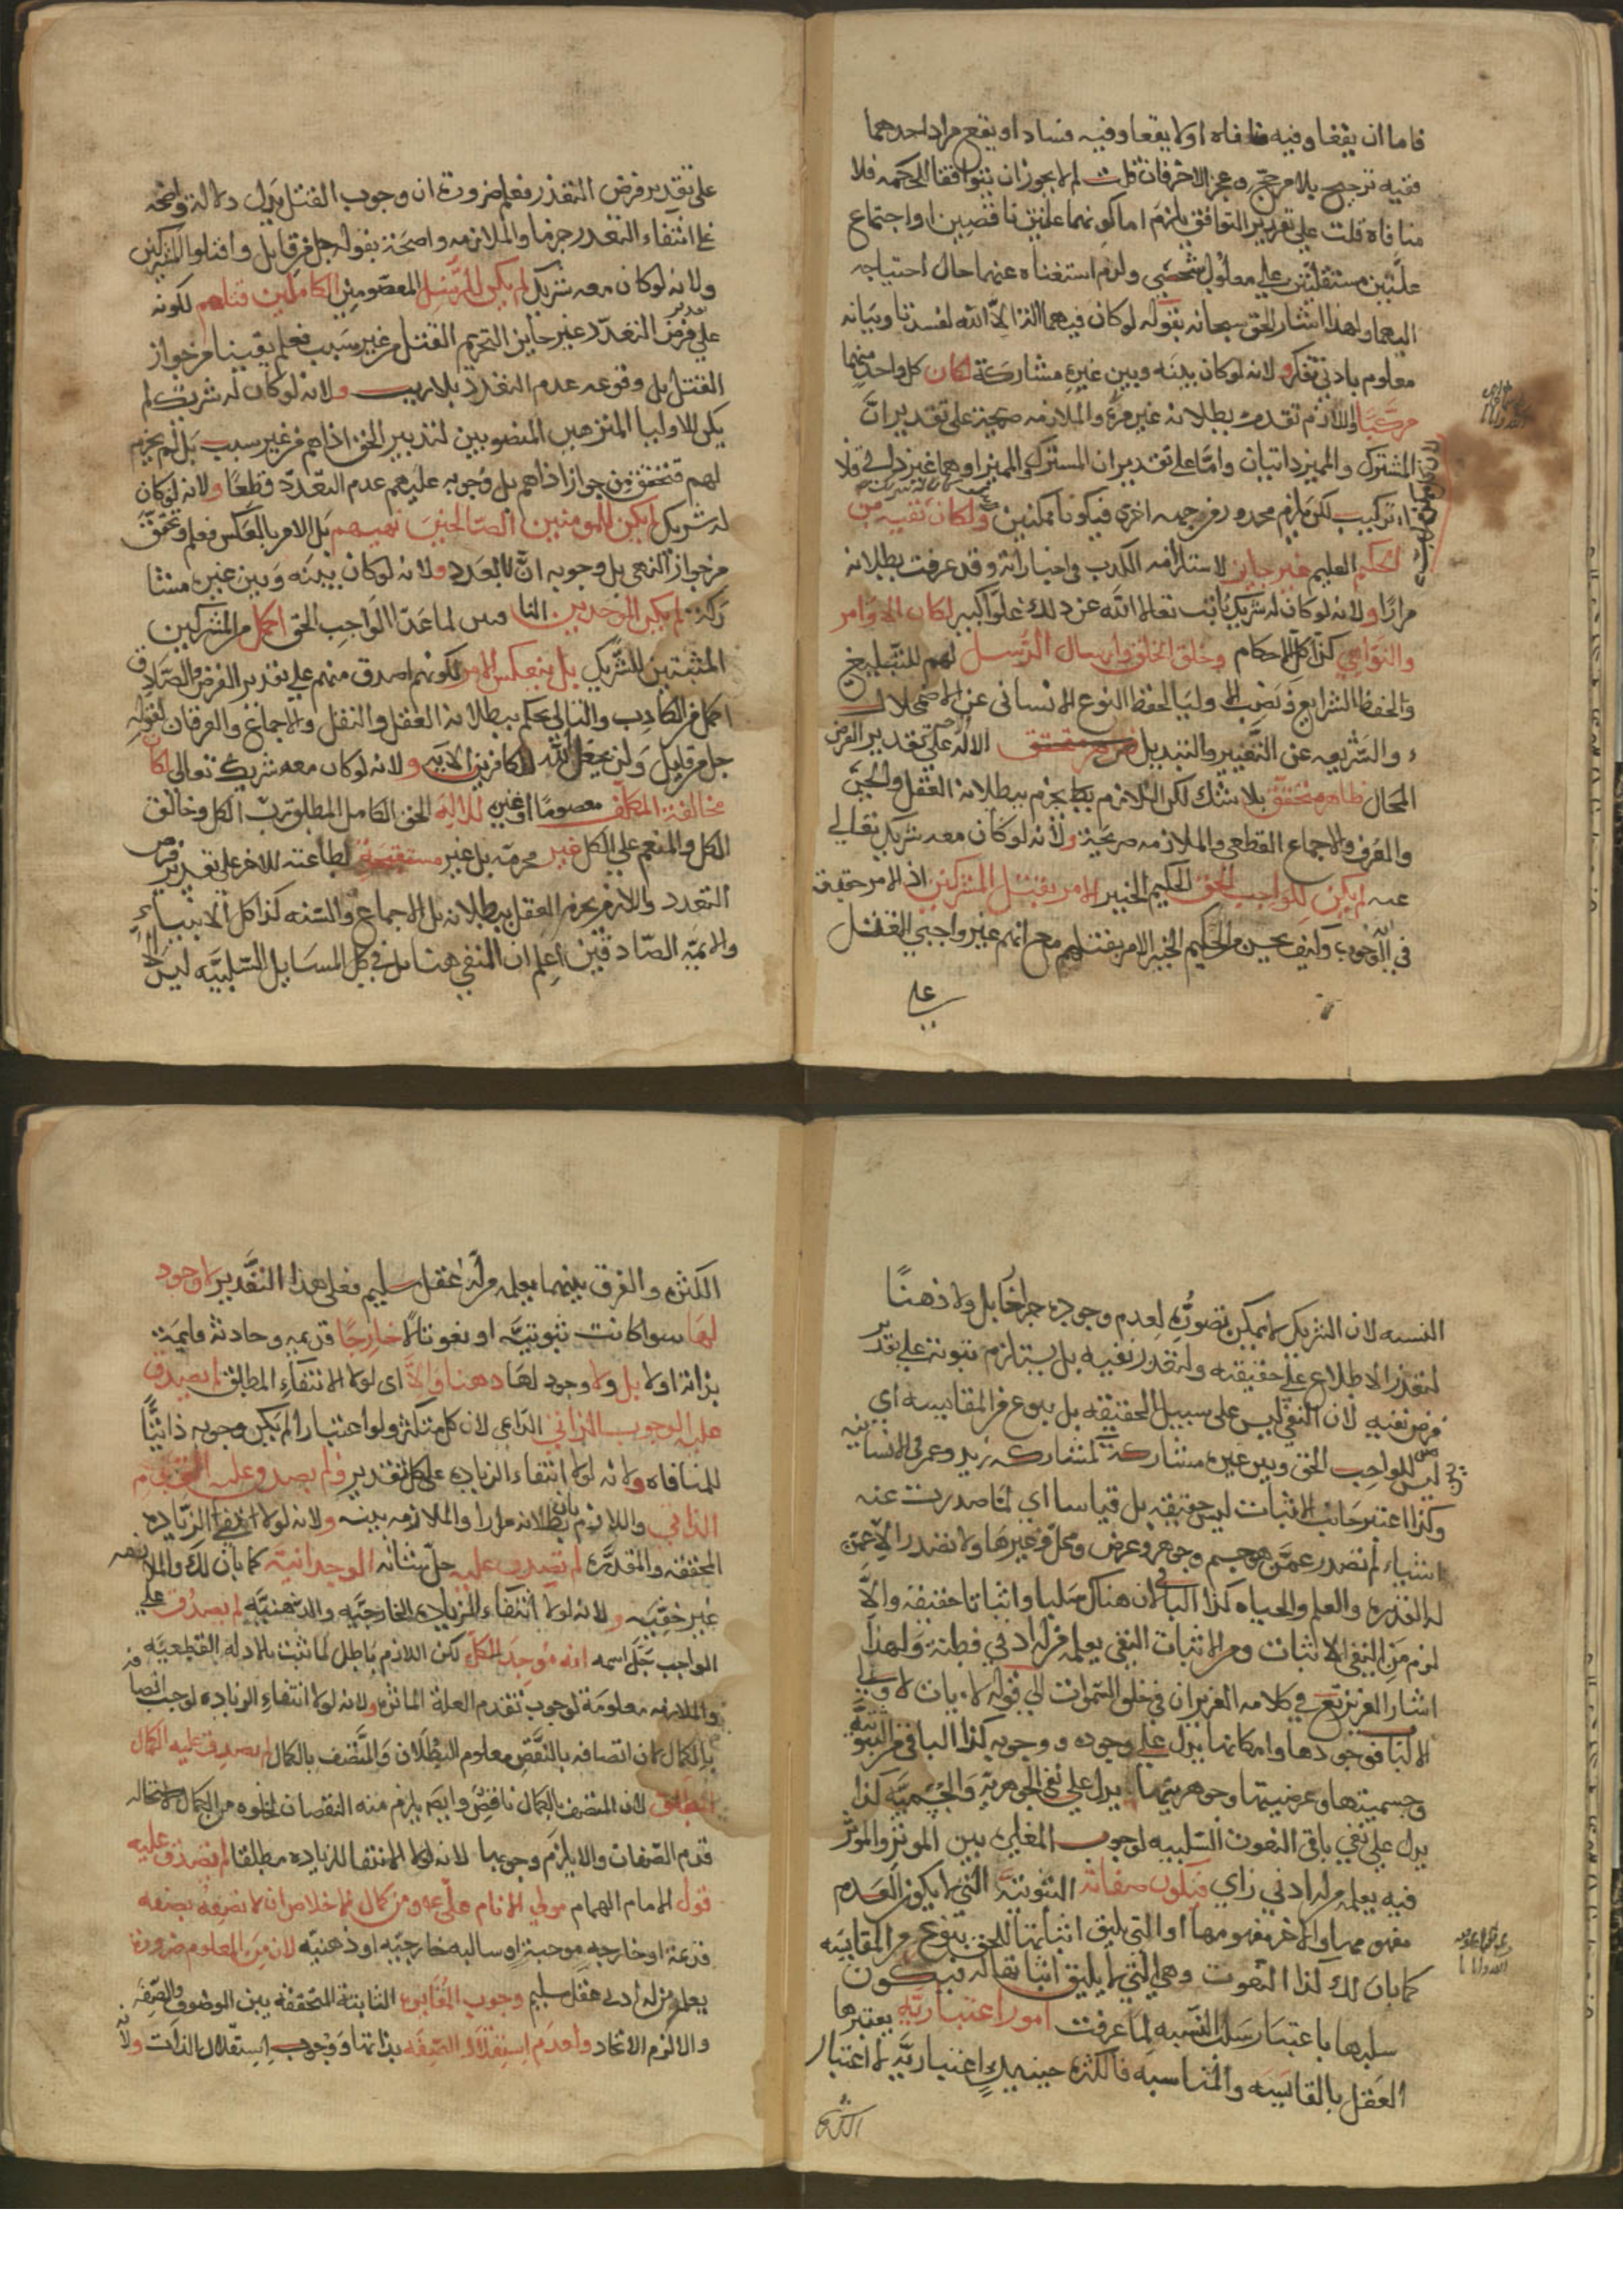 فاما ان يقعا وفيه منافاه او لا يقعا وفيه فساد او يقع مراد احدهما
ففيه ترجيح بلا مرجح وعجز الاخر فان قلت لم لا يجوز ان يتوافقا لحكمه فلا
منافاة قلت على تقدير التوافق يلزم اما كونهما علتين ناقصين او اجتماع
علتين مستقلتين على معلول شخصي ولزم استغناه عنهما حال احتياجه
اليهما ولهذا اشار الحق سبحانه بقوله لو كان فيهما الهة الا الله لفسدتا وبيانه
معلوم بادنى تفكر ولانه لو كان بينه وبين غيره مشاركة لكان كل واحد منهما
مركبا واللازم تقدمت بطلانه غير مرة والملازمه صحيحة على تقدير ان
المشترك والمميز ذاتيان واما على تقدير ان المشترك والمميز او هما غير ذاتي فلا
تركيب لكن يلزم محذور من جهه اخرى فيكونا ممكنين ولكان نفيه من
الحكيم العليم غير جايز لاستلزامه الكذب في اخباراته وقد عرفت بطلانه
مرارا ولانه لو كان له شريك ثابت تعالى الله عن ذلك علوا كبيرا لكان الاوامر
والنواهي كذا كل الاحكام وخلق الخلق وارسال الرسل لهم للتبليغ
والحفظ الشرايع ونصب الاوليا لحفظ النوع الانسانى عن الاضمحلال
والشريعه عن التغيير والتبديل الاله على تقدير الفرض
المحال ظاهر متحقق بلا شك لكن اللازم يجزم ببطلانه العقل والحس
والعرف والاجماع القطعى والملازمه صريحة ولانه لو كان معه شريك تعالى
عنه لم يكن للواجب الحق الحكيم الخبير الامر بقتل المشركين اذ الامر حقيقة
في الوجوب وكيف يحسن من الحكيم الخبير الامر بقتلهم مع انهم غير واجبي القتل
على
على تقدير فرض التعدد فعلم ضرورة ان وجوب القتل يدل دلالة واضحة
على انتفاء التعدد جزما والملازمه واضحة بقوله جل من قايل واقتلوا المشركين
ولانه لو كان معه شريك لم يكن للرسل المعصومين الكاملين قتالهم لكونه
على فرض التعدد غير جايز التحريم القتل من غير سبب فعلم يقينا من جواز
القتل بل وقوعه عدم التعدد بلا ريب ولانه لو كان له شريك لم
يكن للاوليا المنزهين المنصوبين لتدبير الخلق اذاهم من غير سبب بل لم يجز
لهم فتحقق من جواز اذاهم بل وجوبه عليهم عدم التعدد قطعا ولانه لو كان
له شريك لم يكن للمومنين الصالحين نهيهم بل الامر بالعكس فعلم وتحقق
من جواز النهى بل وجوبه ان لا تعدد ولانه لو كان بينه وبين غيره مشا
ركة لم يكن الموحدين لما عدا الواجب الحق اكمل من المشركين
المثبتين للشريك بل ينعكس الامر لكونهم اصدق منهم على تقدير الفرض والصادق
اكمل من الكاذب والتالى يحكم ببطلانه العقل والنقل والاجماع والعرفان لقوله
جل من قايل ولن يجعل الله للكافرين الايه ولانه لو كان معه شريك تعالى لكان
مخالفة المكلف معصوما او غيره للاله الحق الكامل المطلق رب الكل وخالق
الكل والمنعم على الكل غير محرمة بل غير مستقبحة لطاعته للاخر على تقدير فرض
التعدد واللازم يجزم العقل ببطلانه بل الاجماع والسنه كذا كل الانبياء
والايمة الصادقين اعلم ان النفى هنا بل في كل المسايل السلبيه ليس
النسبه لان الشريك لا يمكن تصوره لعدم وجوده خارجا بل ولا ذهنا
لتعذر الاطلاع على حقيقته ولتعذر نفيه بل يستلزم ثبوته على تقدير
فرض نفيه لان النفى ليس على سبيل الحقيقه بل بنوع من المقايسه اي
ليس للواجب الحق وبين غيره مشاركة كمشاركة زيد وعمرو فى الانسانيه
وكذا اعتبر جانب الاثبات ليس حقيقه بل قياسا اي لما صدرت عنه
اشياء لم تصدر عمن هو جسم وجوهر وعرض ومحل وغيرها ولا تصدر الا عمن
له القدره والعلم والحياه كذا الباقى لان هناك سلبا واثباتا حقيقة والا
لزم من النفى الاثبات ومن الاثبات النفى يعلمه من له ادنى فطنة ولهذا
اشار العزيز فى كلامه العزيز ان فى خلق السموات الى قوله لايات لاولى
الالباب فوجودها وامكانها يدل على وجوده ووجوبه كذا الباقى من الثبوتيه
وجسميتها وعرضيتها وجوهريتها يدل على نفى الجوهريه والجسميه كذا
يدل على نفى باقى النعوت السلبيه لوجوب المغايره بين الموثر والموثر
فيه يعلمه من له ادنى راي فيكون صفاته الثبوتية التي لا يكون العدم
مفهومها والاخر مفهومها او التي يليق اثباتها للحق بنوع من المقايسه
كما بان لك كذا النعوت وهي التي لا يليق اثباتها له فيكون
سلبها باعتبار سلب النسبه لما عرفت امورا اعتباريه يعتبرها
العقل بالمقايسه والمناسبه فالكثره حينيذ اعتباريه لا اعتبار
الكثره
الكثره والفرق بينهما يعلمه من له عقل سليم فعلى هذا التقدير لا وجود
لها سوا كانت ثبوتيه او نعوتا لا خارجا قديمه وحادثه قايمة
بذاته اولا بل ولا وجود لها ذهنا والا اى لولا الانتفاء المطلق لم يصدق
عليه الوجوب الذاتى لان كل متكثر ولو اعتبارا لم يكن وجوبه ذاتيا
للمنافاه ولانه لولا انتفاء الزياده على كل تقدير لم يصدق عليه القدم
الذاتى واللازم بان بطلانه مرارا والملازمه بينه ولانه لولا انتفاء الزياده
المحققه والمقدره لم يصدق عليه جل شانه الوحدانية كما بان لك والملازمه
غير خفيه ولانه لولا انتفاء الزياده الخارجيه والذهنيه لم يصدق على
الواجب جل اسمه انه موجد لكل لكن اللازم باطل لما ثبت بالادله القطعيه
والملازمه معلومة لوجوب تقدم العلة الماثره ولانه لولا انتفاء الزياده لوجب اتصافه
بالكمال لان اتصافه بالنقص معلوم البطلان والمتصف بالكمال لم يصدق عليه الكمال
المطلق لان المتصف بالكمال ناقص وايضا يلزم منه النقصان لخلوه من الكمال لاستحاله
قدم الصفات والا يلزم وجوبها ولانه لولا الانتفا للزياده مطلقا لم يصدق عليه
قول الامام الهمام مولى الانام على ومن كمال الاخلاص ان لا نصفه بصفه
قديمة او خارجيه موجبة او سالبه خارجيه او ذهنيه لان من المعلوم ضرورة
يعلمه من له ادنى عقل سليم وجوب المغايره الثابتة المتحققه بين الموصوف والصفه
والا لزم الاتحاد وعدم استقلال الصفه بذاتها ووجوب استقلال الذات ولا